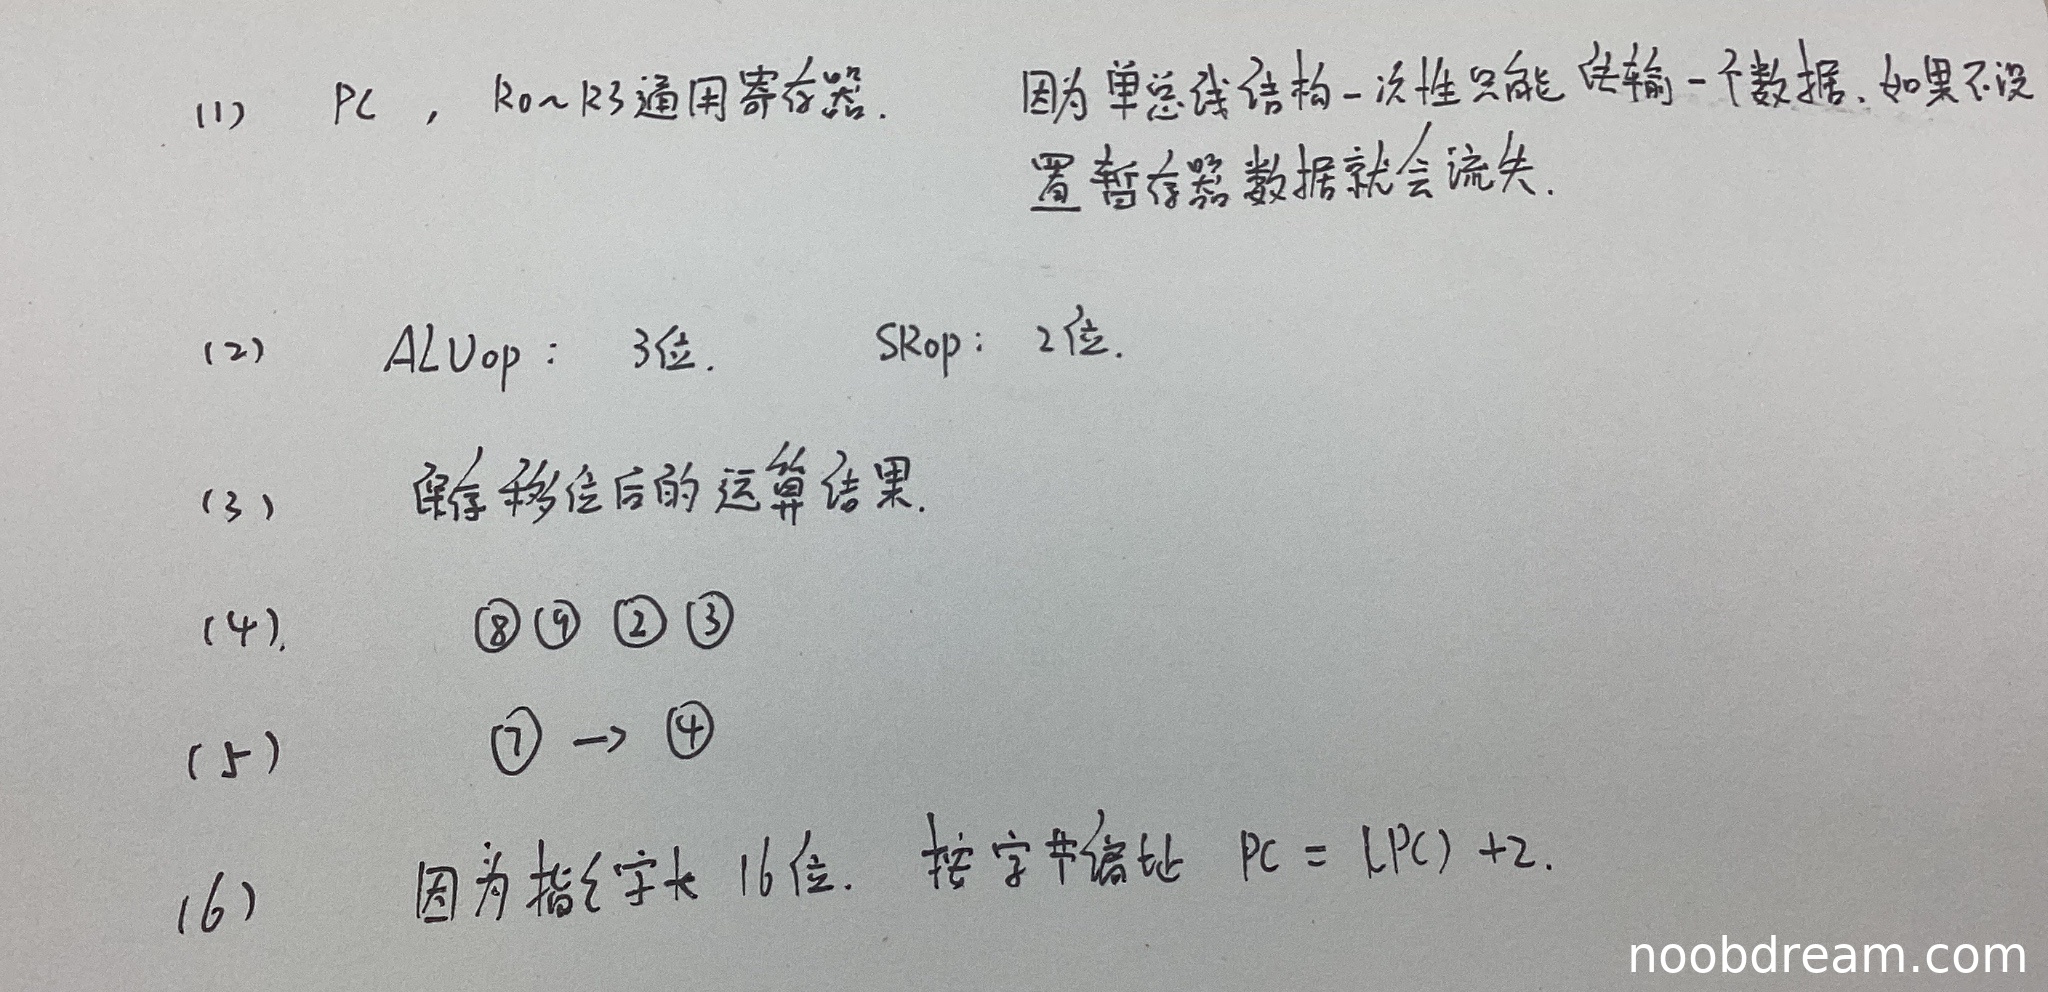 (1) PC , R0~R3通用寄存器. 因为单总线结构一次性只能传输一个数据.如果不设
置暂存器数据就会流失.
(2) ALUop: 3位. SRop: 2位.
(3) 保存移位后的运算结果.
(4). ⑧⑨②③
(5) ⑦→④
(6) 因为指令字长16位. 按字节编址 PC = (PC) +2.
noobdream.com